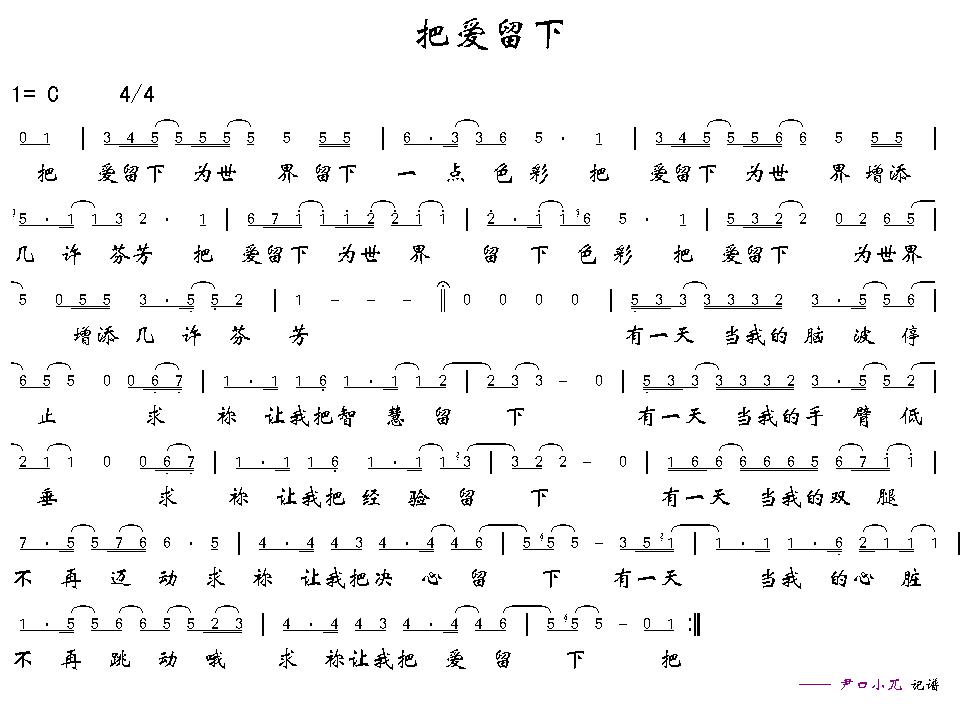 把爱留下
1= C 4/4
0 1 | 3 4 5 5 5 5 5 5 5 5 | 6 · 3 3 6 5 · 1 | 3 4 5 5 5 6 6 5 5 5 |
把 爱留下 为世 界 留下 一 点 色 彩 把 爱留下 为世 界 增添
5 · 1 1 3 2 · 1 | 6 7 i i i 2 2 i i | 2 · i i 6 5 · 1 | 5 3 2 2 0 2 6 5 |
几 许 芬芳 把 爱留下 为世 界 留 下 色 彩 把 爱留下 为世界
5 0 5 5 3 · 5 5 2 | 1 – – – || 0 0 0 0 | 5 3 3 3 3 3 2 3 · 5 5 6 |
增添 几 许 芬 芳 有一天 当我的 脑 波 停
6 5 5 0 0 6 7 | 1 · 1 1 6 1 · 1 1 2 | 2 3 3 – 0 | 5 3 3 3 3 3 2 3 · 5 5 2 |
止 求 祢 让我把智 慧 留 下 有一天 当我的手 臂 低
2 1 1 0 0 6 7 | 1 · 1 1 6 1 · 1 1 3 | 3 2 2 – 0 | 1 6 6 6 6 6 5 6 7 i i |
垂 求 祢 让我把 经 验 留 下 有一天 当我的双 腿
7 · 5 5 7 6 6 · 5 | 4 · 4 4 3 4 · 4 4 6 | 5 5 5 – 3 5 1 | 1 · 1 1 · 6 2 1 1 1 |
不 再 迈 动 求 祢 让我把决 心 留 下 有一天 当我 的心 脏
1 · 5 5 6 6 5 5 2 3 | 4 · 4 4 3 4 · 4 4 6 | 5 5 5 – 0 1 :||
不 再 跳 动 哦 求 祢让我把 爱 留 下 把
—— 尹口小兀 记谱